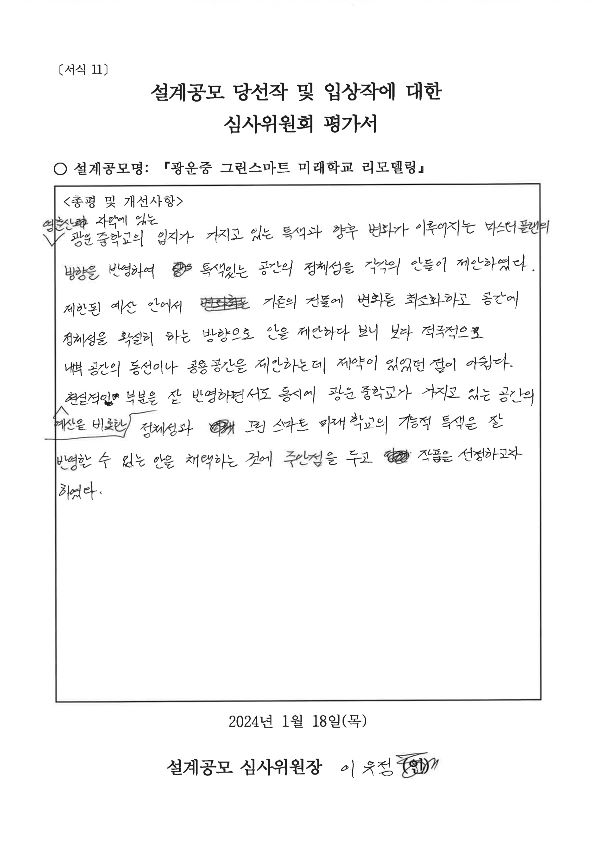 〔서식 11〕
설계공모 당선작 및 입상작에 대한
심사위원회 평가서
○ 설계공모명: 『광운중 그린스마트 미래학교 리모델링』
<총평 및 개선사항>
자락에 있는
광운 중학교의 입지가 가지고 있는 특색과 향후 변화가 이루어지는 마스터플랜의
방향을 반영하여 특색있는 공간의 정체성을 각각의 안들이 제안하였다.
제한된 예산 안에서 기존의 건물에 변화를 최소화하고 공간에
정체성을 확실히 하는 방향으로 안을 제안하다 보니 보다 적극적으로
내부 공간의 동선이나 공용공간을 제안하는데 제약이 있었던 점이 아쉽다.
현실적인 부분을 잘 반영하면서도 동시에 광운중학교가 가지고 있는 공간의
예산을 비롯한 정체성과 그린 스마트 미래학교의 기능적 특색을 잘
반영한 수 있는 안을 채택하는 것에 주안점을 두고 작품을 선정하고자
하였다.
2024년 1월 18일(목)
설계공모 심사위원장 이우정